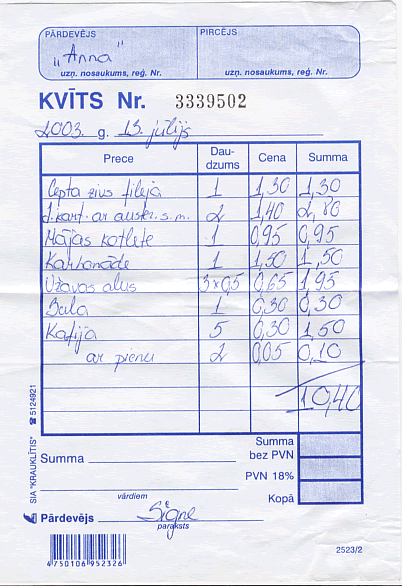 PĀRDEVĒJS PIRCĒJS
"Anna"
uzņ. nosaukums, reģ. Nr. uzņ. nosaukums, reģ. Nr.
KVĪTS Nr. 3339502
2003. g. 13. jūlijs
Prece Dau-dzums Cena Summa
Cepta zivs fileja 1 1,30 1,30
J. kart. ar austr. s. m. 2 1,40 2,80
Mājas kotlete 1 0,95 0,95
Karbonāde 1 1,50 1,50
Užavas alus 3x0,5 0,65 1,95
Sula 1 0,30 0,30
Kafija 5 0,30 1,50
ar pienu 2 0,05 0,10
10,40
Summa bez PVN
Summa
PVN 18%
vārdiem
Kopā
Pārdevējs Signe
paraksts
SIA "KRAUKLĪTIS" ☎ 5124921
4750106952326
2523/2